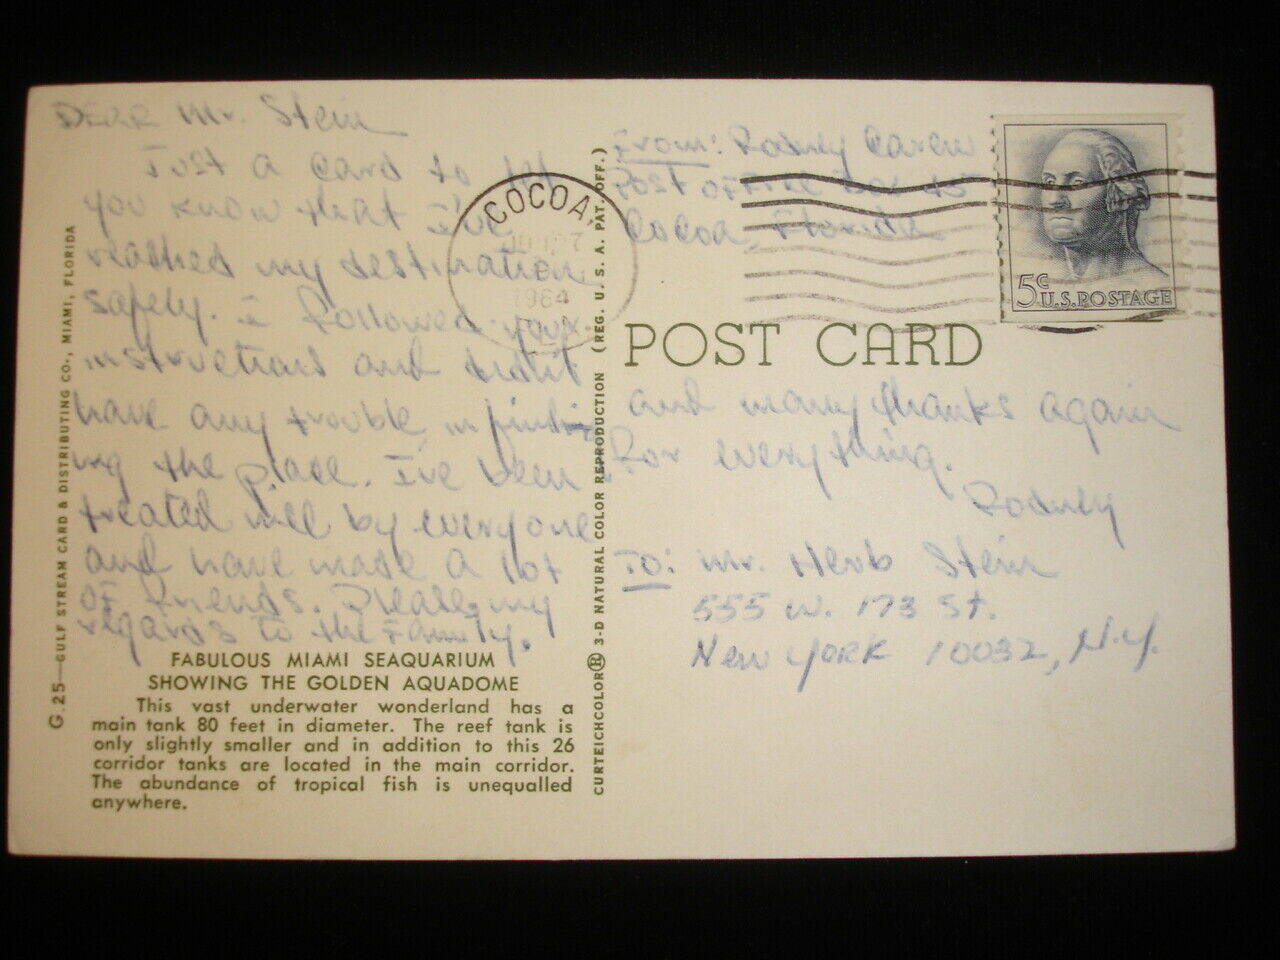 DEAR Mr. Stein
Just a card to let
you know that I've
reached my destination
safely. I followed your
instructions and didn't
have any trouble in find-
ing the place. I've been
treated well by everyone
and have made a lot
of friends. Please, my
regards to the family.
and many thanks again
for everything.
Rodney
From: Rodney Carew
Post office Box 45
Cocoa, Florida
To: Mr. Herb Stein
555 W. 173 St.
New York 10032, N.Y.
COCOA,
1964
5c
U.S. POSTAGE
POST CARD
FABULOUS MIAMI SEAQUARIUM
SHOWING THE GOLDEN AQUADOME
This vast underwater wonderland has a
main tank 80 feet in diameter. The reef tank is
only slightly smaller and in addition to this 26
corridor tanks are located in the main corridor.
The abundance of tropical fish is unequalled
anywhere.
G.25—GULF STREAM CARD & DISTRIBUTING CO., MIAMI, FLORIDA
CURTEICHCOLOR® 3-D NATURAL COLOR REPRODUCTION (REG. U. S. A. PAT. OFF.)